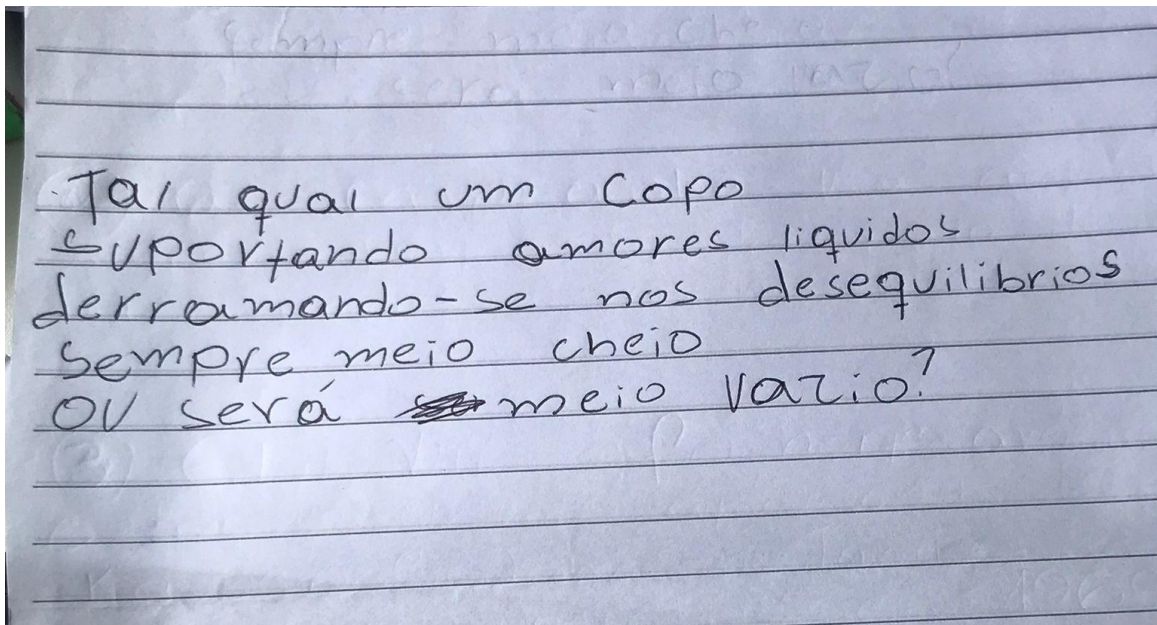 Tal qual um copo
suportando amores liquidos
derramando-se nos desequilibrios
sempre meio cheio
ou será meio vazio?